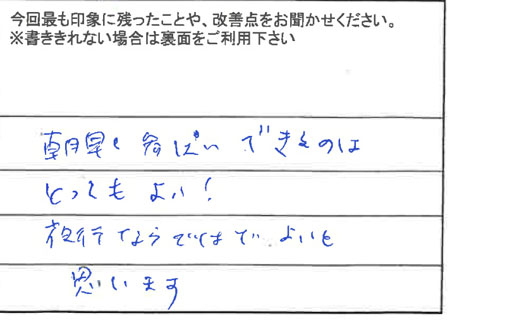 今回最も印象に残ったことや、改善点をお聞かせください。
※書ききれない場合は裏面をご利用下さい
朝早く参ぱいできるのは
とってもよい!
夜行ならではで よいと
思います